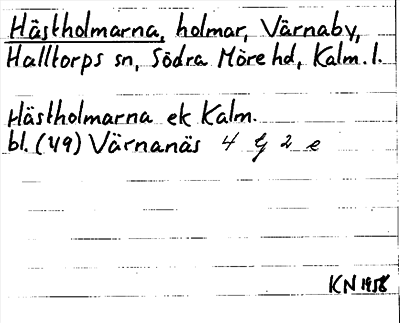 Hästholmarna, holmar, Värnaby,
Halltorps sn, Södra Möre hd, Kalm. l.
Hästholmarna ek Kalm.
bl. (49) Värnanäs 4 G 2 e
KN 1958